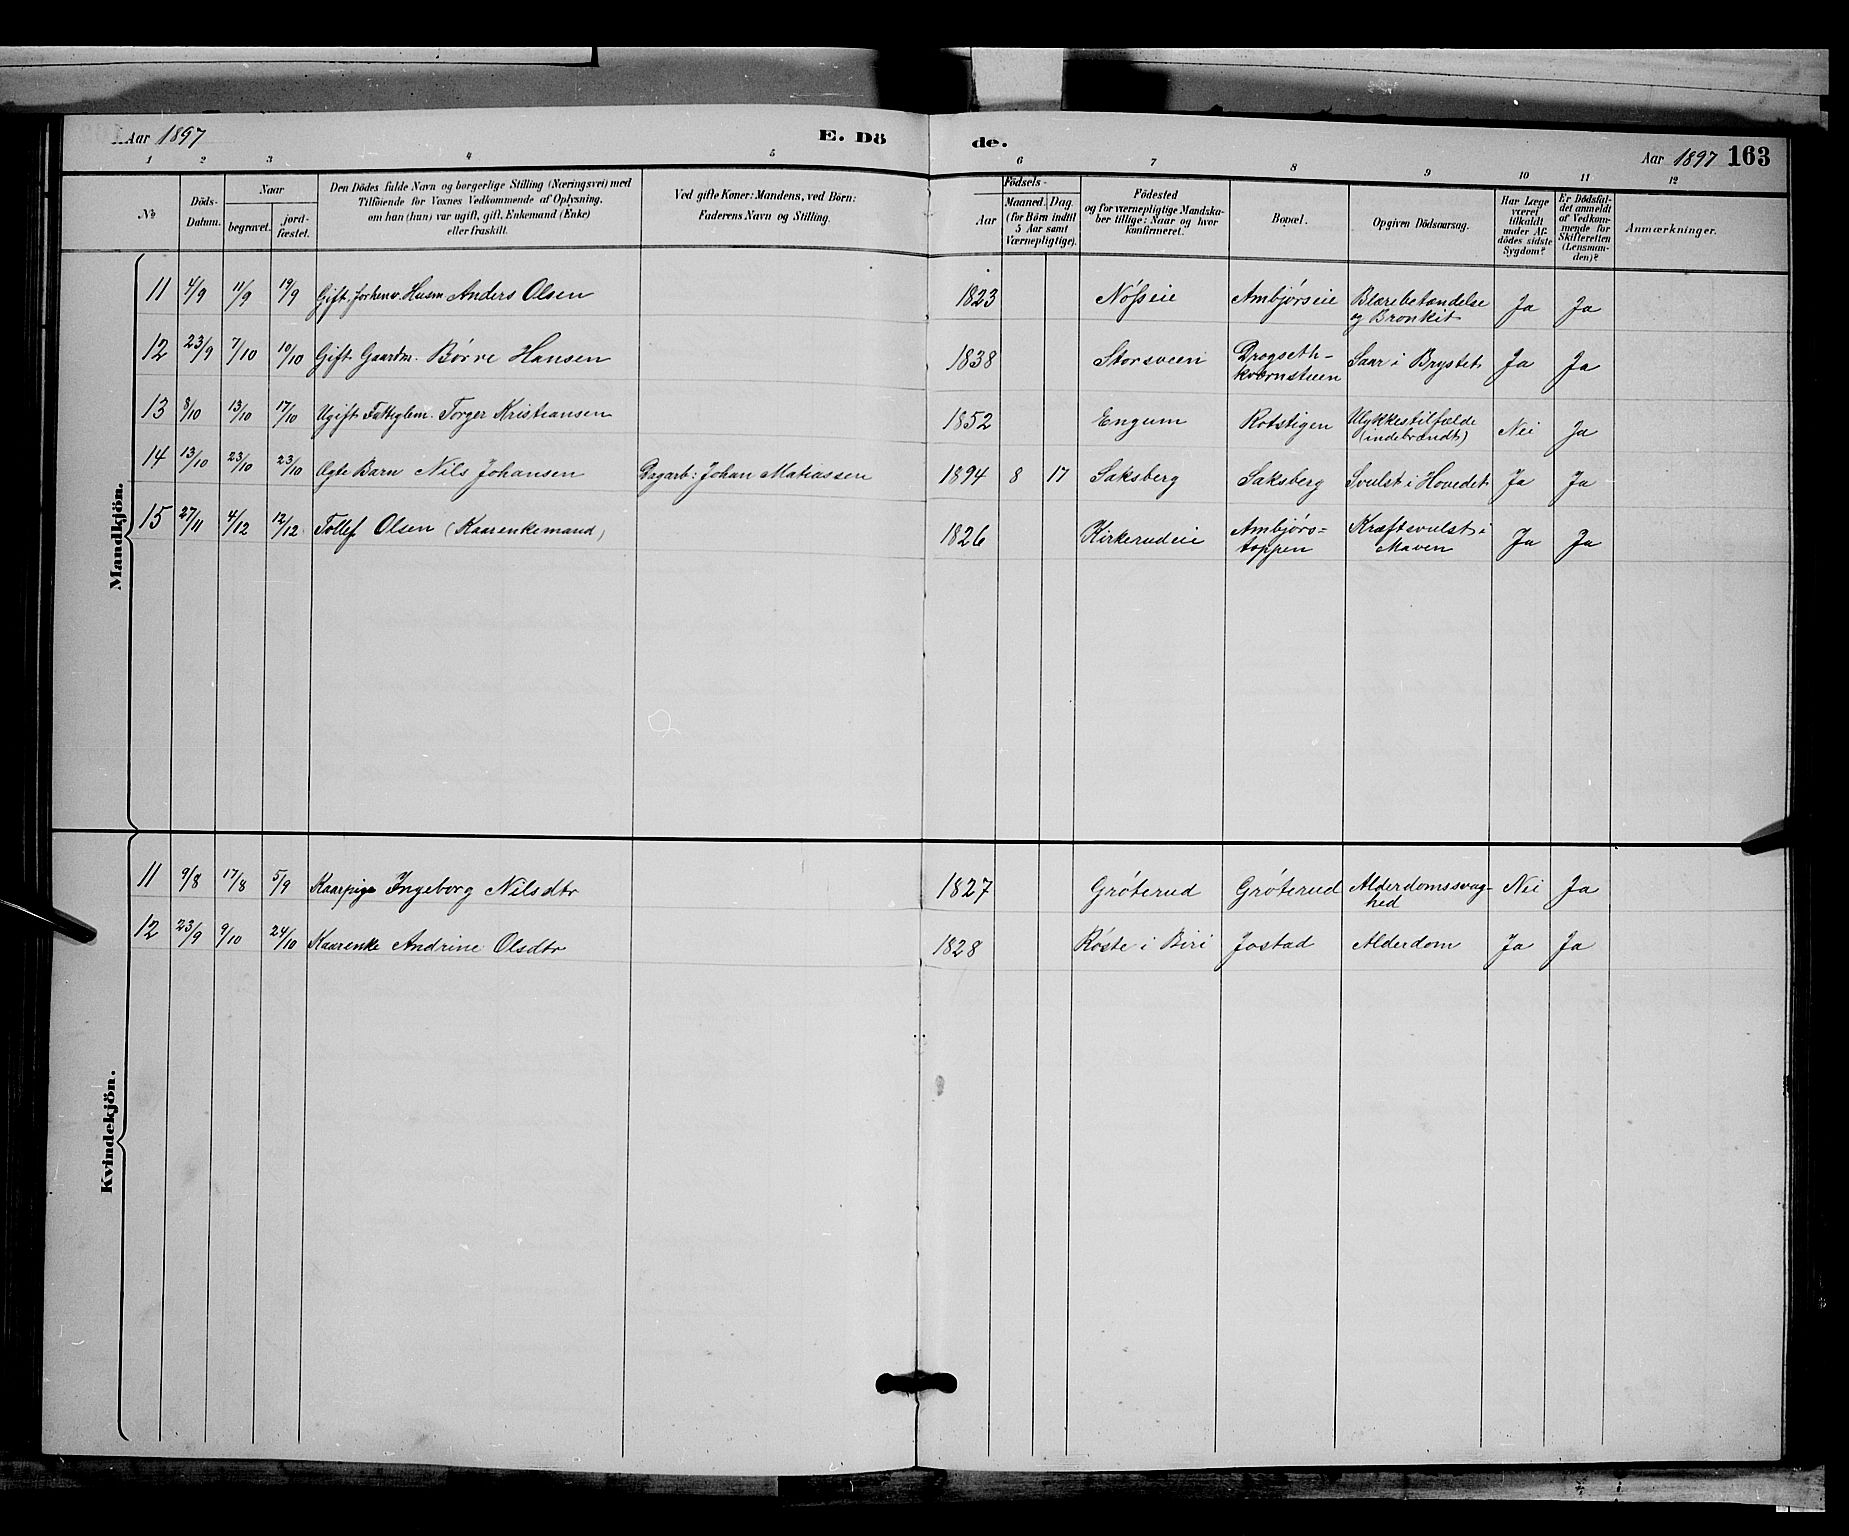 Aar 1897 E. Dö de. Aar 1897 163
1 2 3 4 5 6 7 8 9 10 11 12
No
Döds-
Datum.
Naar
begravet.
jord-
fæstet.
Den Dödes fulde Navn og borgerlige Stilling (Næringsvei) med
Tilföiende for Voxnes Vedkommende af Oplysning,
om han (hun) var ugift, gift, Enkemand (Enke)
eller fraskilt.
Ved gifte Koner: Mandens, ved Börn:
Faderens Navn og Stilling.
Födsels-
Aar
Maaned. Dag.
(for Börn indtil
5 Aar samt
Værnepligtige).
Födested
og for værnepligtige Mandska-
ber tillige: Naar og hvor
konfirmeret.
Bopæl.
Opgiven Dödsaarsag.
Har Læge
været
tilkaldt
under Af-
dödes sidste
Sygdom?
Er Dödsfal-
det anmeldt
af Vedkom-
mende for
Skifteretten
(Lensman-
den)?
Anmærkninger.
Mandkjön.
11 4/9 11/9 19/9 Gift forhenv. Husm Anders Olsen 1823 Nøsseie Ambjørseie Blærebetændelse og Bronkit Ja Ja
12 23/9 7/10 10/10 Gift Gaardm. Børre Hansen 1838 Storsveen Drogseth-kvernstuen Saar i Brystet Ja Ja
13 8/10 13/10 17/10 Ugift Fattiglem. Torger Kristiansen 1852 Engum Rotstigen Ulykkestilfælde (indebrændt) Nei Ja
14 13/10 23/10 23/10 Ægte Barn Nils Johansen Dagarb: Johan Matiassen 1894 8 17 Saksberg Saksberg Svulst i Hovedet Ja Ja
15 27/11 4/12 12/12 Tollef Olsen (Kaarenkemand) 1826 Kirkerudeie Ambjørs-toppen Kræftsvulst i Maven Ja Ja
Kvindekjön.
11 9/8 17/8 5/9 Kaarpige Ingeborg Nilsdtr 1827 Grøterud Grøterud Alderdomssvag-hed Nei Ja
12 23/9 9/10 24/10 Kaarenke Andrine Olsdtr 1828 Røste i Biri Jostad Alderdom Ja Ja